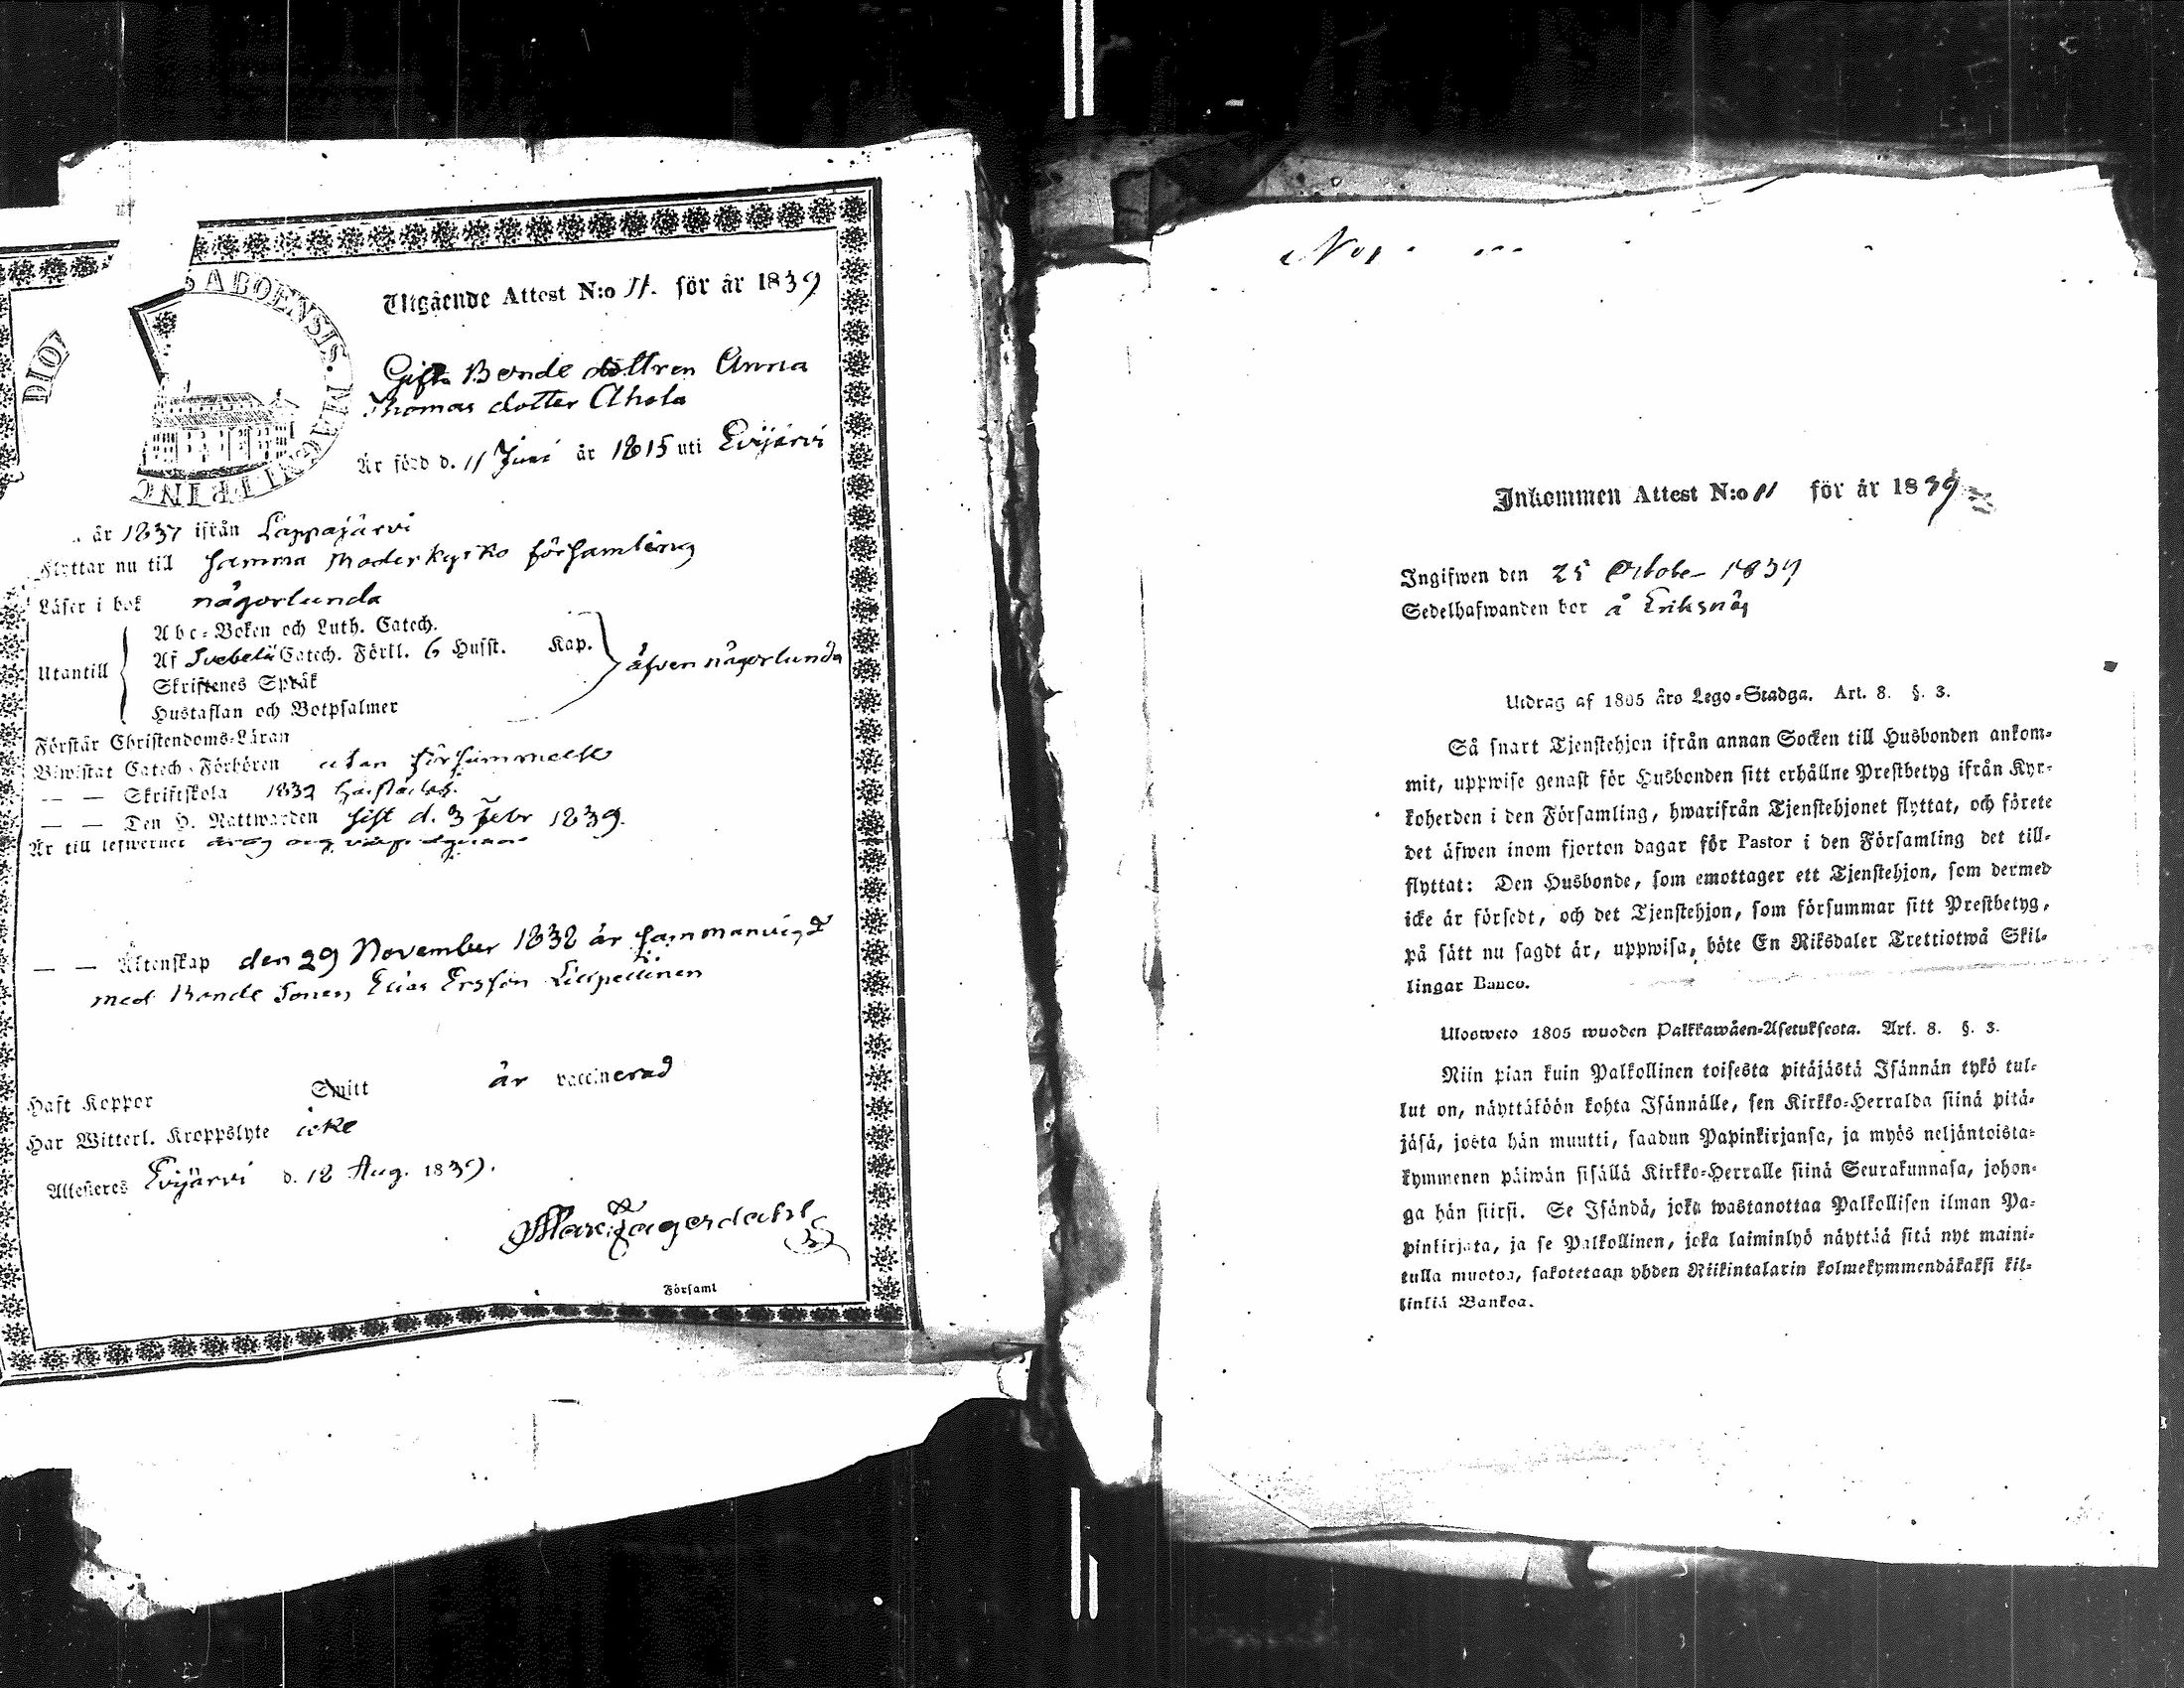 Utgående Attest N:o 11. för år 1839
DIO
S ABOENSIS. MAGNI PRINC
Gifta Bonde dottren Anna
Thomas dotter Ahola
Är född d. 11 Juni år 1815 uti Evijärvi
år 1837 ifrån Lappajärvi
Flyttar nu till samma Moderkyrko församling
Läser i bok någorlunda
Utantill
Abc-Boken och Luth. Catech.
Af Svebelii Catech. Förkl. 6 Husst. Kap.
Skriftenes Språk
Hustaflan och Botpsalmer
äfven någorlunda
Förstår Christendoms-Läran
Biwistat Catech. Förhören utan försummelse
— — Skriftskola 1832
— — Den H. Nattwarden sist d. 3 Febr 1839.
Är till lefwernet
— — Äktenskap den 29 November 1838 är sammanvigd
med Bonde Sonen Elias Ersson
Haft Koppor Smitt är vaccinerad
Har Witterl. Kroppslyte icke
Attesteras Evijärvi d. 12 Aug. 1839.
Församl
Inkommen Attest N:o 11 för år 1839
Ingifwen den 25 October 1839
Sedelhafwanden bor å Eriksnäs
Utdrag af 1805 års Lego-Stadga. Art. 8. §. 3.
Så snart Tjenstehjon ifrån annan Socken till Husbonden ankom-
mit, uppwise genast för Husbonden sitt erhållne Prestbetyg ifrån Kyr-
koherden i den Församling, hwarifrån Tjenstehjonet flyttat, och förete
det äfwen inom fjorton dagar för Pastor i den Församling det till-
flyttat: Den Husbonde, som emottager ett Tjenstehjon, som dermed
icke är försedt, och det Tjenstehjon, som försummar sitt Prestbetyg,
på sätt nu sagdt är, uppwisa, böte En Riksdaler Trettiotwå Skil-
lingar Banco.
Ulosweto 1805 wuoden Palkkawäen-Asetuksesta. Art. 8. §. 3.
Niin pian kuin Palkollinen toisesta pitäjästä Isännän tykö tul-
lut on, näyttäköön kohta Isännälle, sen Kirkko-Herralda siinä pitä-
jäsä, josta hän muutti, saadun Papinkirjansa, ja myös neljäntoista-
kymmenen päiwän sisällä Kirkko-Herralle siinä Seurakunnasa, johon-
ga hän siirsi. Se Isändä, joka wastanottaa Palkollisen ilman Pa-
pinkirjata, ja se Palkollinen, joka laiminlyö näyttää sitä nyt maini-
tulla muotoa, sakotetaan yhden Riikintalarin kolmekymmendäkaksi kil-
linkiä Bankoa.